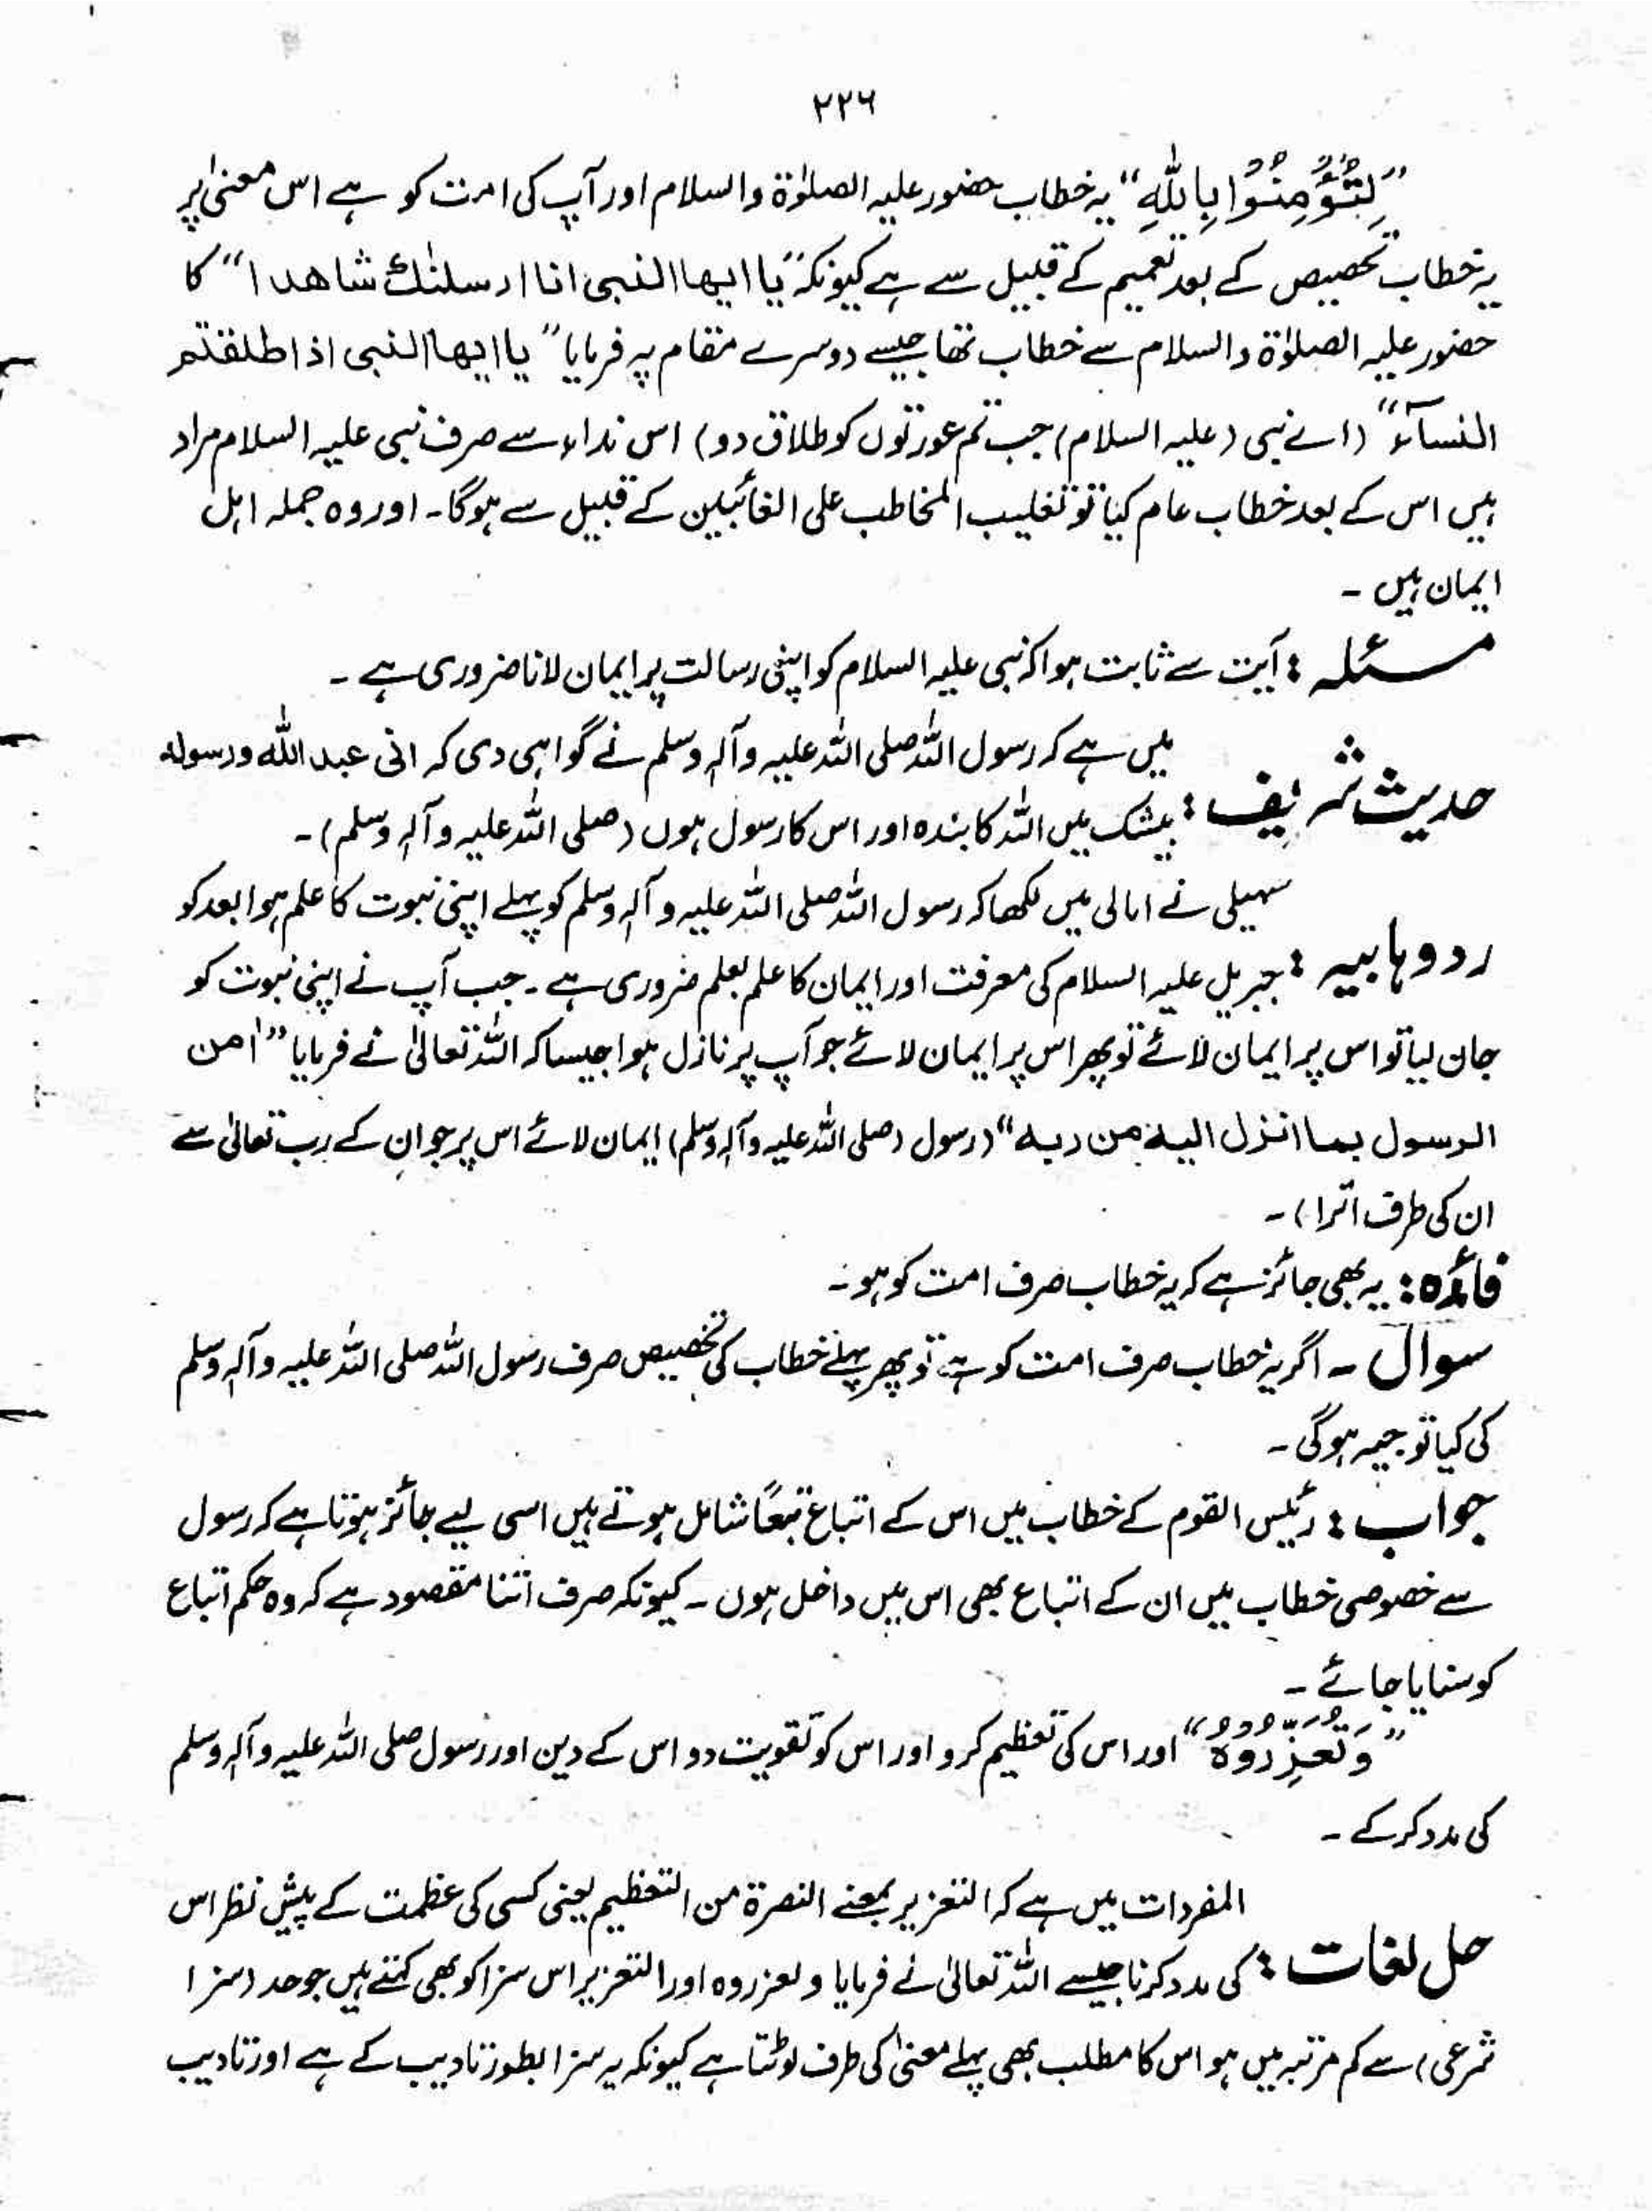 ۲۲۶
”لِتُؤْمِنُوْا بِاللّٰهِ“ یہ خطاب حضور علیہ الصلوٰۃ والسلام اور آپ کی امت کو ہے اس معنیٰ پر
یہ خطاب تخصیص کے بعد تعمیم کے قبیل سے ہے کیونکہ ”یا ایها النبی انا ارسلنٰك شاهدا“ کا
حضور علیہ الصلوٰۃ والسلام سے خطاب تھا جیسے دوسرے مقام پہ فرمایا ”یا ایها النبی اذا طلقتم
النسآء“ (اے نبی (علیہ السلام) جب تم عورتوں کو طلاق دو) اس نداء سے صرف نبی علیہ السلام مراد
ہیں اس کے بعد خطاب عام کیا تو تغلیب المخاطب علی الغائبین کے قبیل سے ہوگا۔ اور وہ جملہ اہل
ایمان ہیں ۔
مسئلہ : آیت سے ثابت ہوا کہ نبی علیہ السلام کو اپنی رسالت پر ایمان لانا ضروری ہے ۔
حدیث شریف : میں ہے کہ رسول اللہ صلی اللہ علیہ وآلہٖ وسلم نے گواہی دی کہ انی عبد اللّٰه ورسوله
بیشک میں اللہ کا بندہ اور اس کا رسول ہوں (صلی اللہ علیہ وآلہٖ وسلم) ۔
رد وہابیہ : سہیلی نے امالی میں لکھا کہ رسول اللہ صلی اللہ علیہ وآلہٖ وسلم کو پہلے اپنی نبوت کا علم ہوا بعد کو
جبریل علیہ السلام کی معرفت اور ایمان کا علم بعلم ضروری ہے ۔ جب آپ نے اپنی نبوت کو
جان لیا تو اس پر ایمان لائے تو پھر اس پر ایمان لائے جو آپ پر نازل ہوا جیسا کہ اللہ تعالیٰ نے فرمایا ”اٰمن
الرسول بما انزل الیه من ربه“ (رسول (صلی اللہ علیہ وآلہٖ وسلم) ایمان لائے اس پر جو ان کے رب تعالیٰ سے
ان کی طرف اترا) ۔
فائدہ : یہ بھی جائز ہے کہ یہ خطاب صرف امت کو ہو ۔
سوال ۔ اگر یہ خطاب صرف امت کو ہے تو پھر پہلے خطاب کی تخصیص صرف رسول اللہ صلی اللہ علیہ وآلہٖ وسلم
کی کیا توجیہ ہوگی ۔
جواب : رئیس القوم کے خطاب میں اس کے اتباع تبعًا شامل ہوتے ہیں اسی لیے جائز ہوتا ہے کہ رسول
سے خصوصی خطاب میں ان کے اتباع بھی اس میں داخل ہوں ۔ کیونکہ صرف اتنا مقصود ہے کہ وہ حکم اتباع
کو سنایا جائے ۔
”وَتُعَزِّرُوْهُ“ اور اس کی تعظیم کرو اور اس کو تقویت دو اس کے دین اور رسول صلی اللہ علیہ وآلہٖ وسلم
کی مدد کر کے ۔
حل لغات : المفردات میں ہے کہ التعزیر بمعنے النصرۃ من التعظیم یعنی کسی کی عظمت کے پیش نظر اس
کی مدد کرنا جیسے اللہ تعالیٰ نے فرمایا وتعزروہ اور التعزیر اس سزا کو بھی کہتے ہیں جو حد (سزا
شرعی) سے کم مرتبہ میں ہو اس کا مطلب بھی پہلے معنیٰ کی طرف لوٹتا ہے کیونکہ یہ سزا بطور تادیب کے ہے اور تادیب